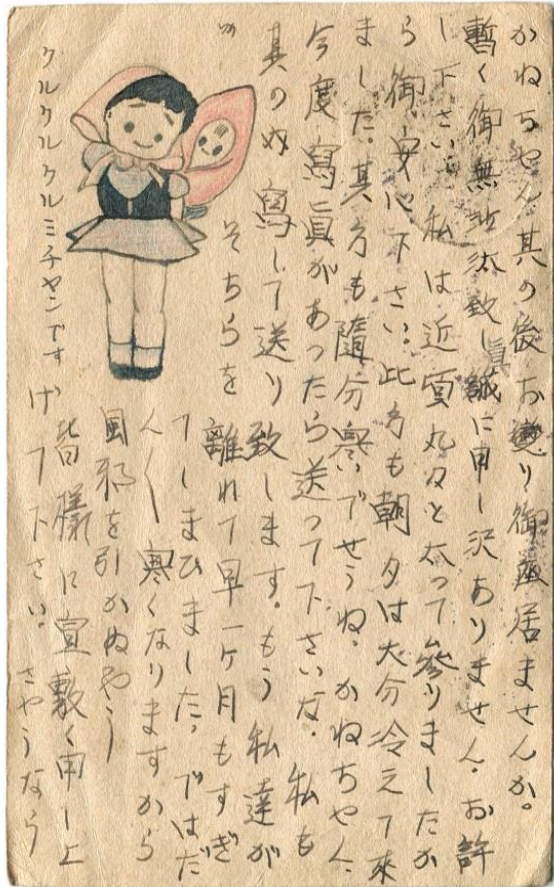 かねちゃん其の後お変り御座居ませんか。
暫く御無沙汰致し誠に申し沢ありません。お許
し下さい。私は近頃丸々と太って参りましたか
ら御安心下さい。此方も朝夕は大分冷えて来
ました。其方も随分寒いでせうね。かねちゃん、
今度寫眞があったら送って下さいな。私も
其の内寫して送り致します。もう私達が
そちらを離れて早一ヶ月もすぎ
てしまひました。ではだ
ん〱寒くなりますから
風邪を引かぬやう
皆様に宣敷く申し上
げ下さい。さやうなら
クルクルクルミチャンです